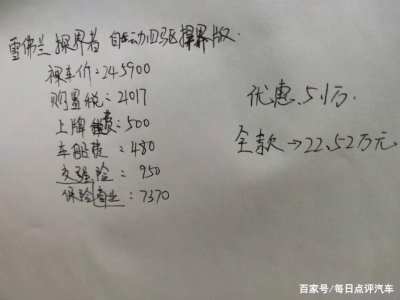 雪佛兰 探界者 自动四驱探界版.
裸车价:245900
购置税:21017
上牌费:500
车船费:480
交强险:950
保险商业:7370
优惠5.1万.
全款→22.52万元
百家号/每日点评汽车